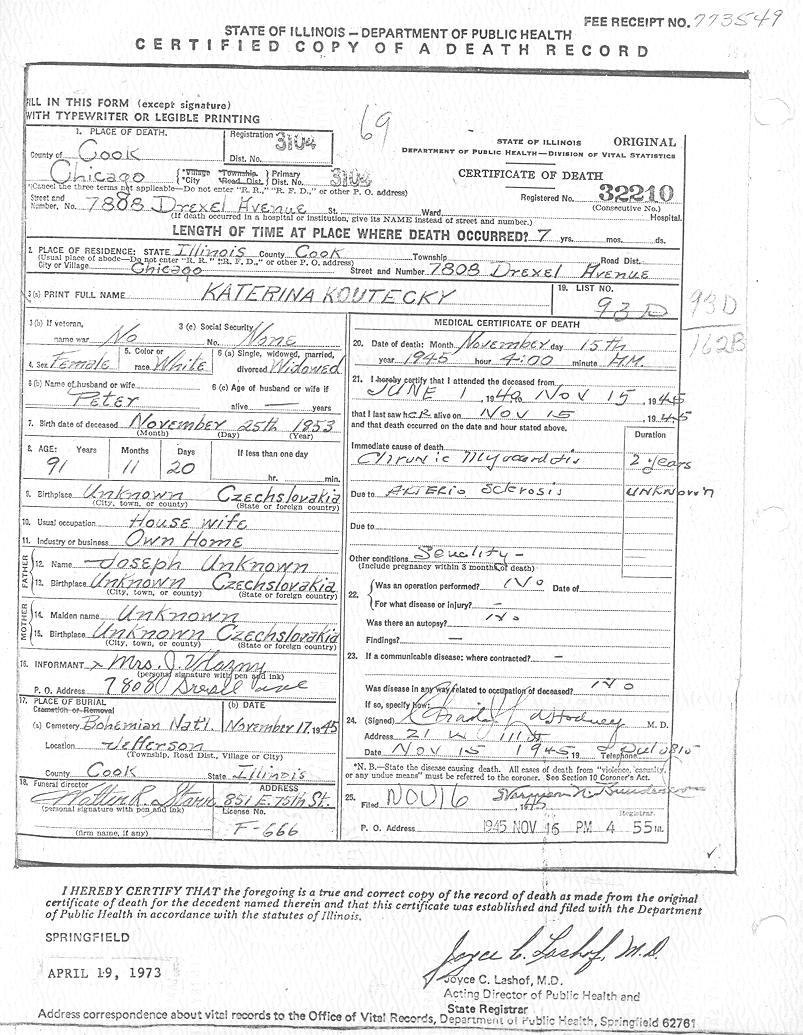 FEE RECEIPT NO. 773549
STATE OF ILLINOIS – DEPARTMENT OF PUBLIC HEALTH
CERTIFIED COPY OF A DEATH RECORD
ILL IN THIS FORM (except signature)
WITH TYPEWRITER OR LEGIBLE PRINTING
69
1. PLACE OF DEATH.
Registration 3104
Dist. No.
County of Cook
STATE OF ILLINOIS ORIGINAL
DEPARTMENT OF PUBLIC HEALTH—DIVISION OF VITAL STATISTICS
Chicago *Village *City Township Road Dist. Primary Dist. No. 3104
CERTIFICATE OF DEATH
*(Cancel the three terms not applicable—Do not enter "R. R.," "R. F. D.," or other P. O. address)
Registered No. 32210
(Consecutive No.)
Street and Number, No. 7808 Drexel Avenue St. Ward Hospital.
(If death occurred in a hospital or institution, give its NAME instead of street and number.)
LENGTH OF TIME AT PLACE WHERE DEATH OCCURRED? 7 yrs. mos. ds.
2. PLACE OF RESIDENCE: STATE Illinois County Cook Township Road Dist.
(Usual place of abode—Do not enter "R. R." "R. F. D.," or other P. O. address)
City or Village Chicago Street and Number 7808 Drexel Avenue
3 (a) PRINT FULL NAME KATERINA KOUTECKY
19. LIST NO. 93D
93D
162B
3 (b) If veteran, name war No
3 (c) Social Security No. None
4. Sex Female
5. Color or race White
6 (a) Single, widowed, married, divorced Widowed
6 (b) Name of husband or wife Peter
6 (c) Age of husband or wife if alive — years
7. Birth date of deceased November 25th 1853
(Month) (Day) (Year)
8. AGE: Years Months Days If less than one day
91 11 20 hr. min.
9. Birthplace Unknown Czechslovakia
(City, town, or county) (State or foreign country)
10. Usual occupation House wife
11. Industry or business Own Home
FATHER
12. Name Joseph Unknown
13. Birthplace Unknown Czechslovakia
(City, town, or county) (State or foreign country)
MOTHER
14. Maiden name Unknown
15. Birthplace Unknown Czechslovakia
(City, town, or county) (State or foreign country)
16. INFORMANT x Mrs. J. Vlazny
(personal signature with pen and ink)
P. O. Address 7808 Drexell ave
17. PLACE OF BURIAL (b) DATE
Cremation or Removal
(a) Cemetery Bohemian Nat'l. November 17, 1945
Location Jefferson
(Township, Road Dist., Village or City)
County Cook State Illinois
18. Funeral director ADDRESS
Walter R. 851 E. 75th St.
(personal signature with pen and ink) License No.
F-666
(firm name, if any)
MEDICAL CERTIFICATE OF DEATH
20. Date of death: Month November day 15th
year 1945 hour 4:00 minute A.M.
21. I hereby certify that I attended the deceased from
JUNE 1, 1940 NOV 15, 1945
that I last saw her alive on NOV 15, 1945
and that death occurred on the date and hour stated above.
Duration
Immediate cause of death
Chronic Myocarditis 2 years
Due to Arterio Sclerosis UNKNOWN
Due to
Other conditions Senility –
(Include pregnancy within 3 months of death)
22. Was an operation performed? No Date of
For what disease or injury? –
Was there an autopsy? No
Findings? —
23. If a communicable disease; where contracted? –
Was disease in any way related to occupation of deceased? No
If so, specify how:
24. (Signed) M. D.
Address 21 W 111 St
Date NOV 15 1945, 19 Telephone
*N. B.—State the disease causing death. All cases of death from "violence, casualty, or any undue means" must be referred to the coroner. See Section 10 Coroner's Act.
25. Filed NOV 16
Registrar.
P. O. Address 1945 NOV 16 PM 4 55
I HEREBY CERTIFY THAT the foregoing is a true and correct copy of the record of death as made from the original
certificate of death for the decedent named therein and that this certificate was established and filed with the Department
of Public Health in accordance with the statutes of Illinois.
SPRINGFIELD
APRIL 19, 1973
Joyce C. Lashof, M.D.
Joyce C. Lashof, M.D.
Acting Director of Public Health and
State Registrar
Address correspondence about vital records to the Office of Vital Records, Department of Public Health, Springfield 62761